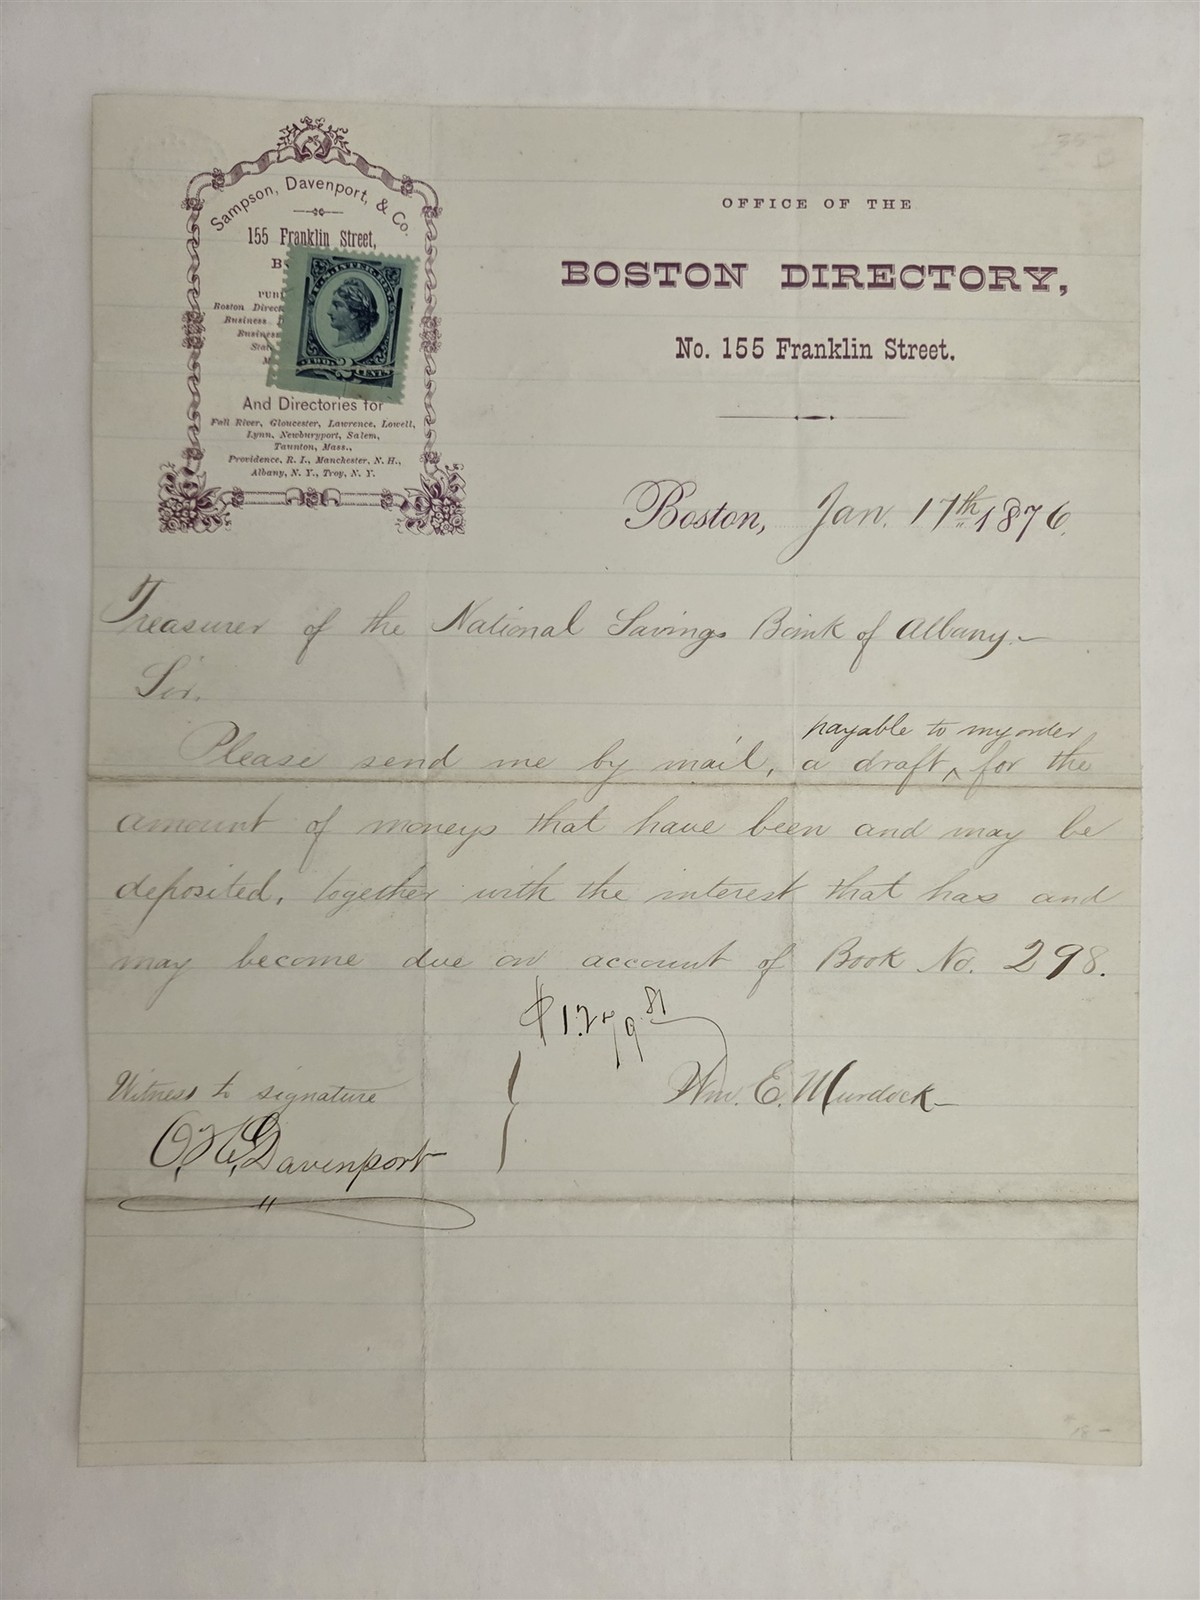 Sampson, Davenport, & Co.
155 Franklin Street,
Boston Direct
Business
Business
And Directories for
Fall River, Gloucester, Lawrence, Lowell,
Lynn, Newburyport, Salem,
Taunton, Mass.,
Providence, R. I., Manchester, N. H.,
Albany, N. Y., Troy, N. Y.
U.S. INTER. REV.
TWO 2 CENTS
OFFICE OF THE
BOSTON DIRECTORY,
No. 155 Franklin Street.
Boston, Jan. 17th 1876.
Treasurer of the National Savings Bank of Albany.—
Sir.
payable to my order
Please send me by mail, a draft ^ for the
amount of moneys that have been and may be
deposited, together with the interest that has and
may become due on account of Book No. 298.
Witness to signature
Wm. E. Murdock—
Davenport